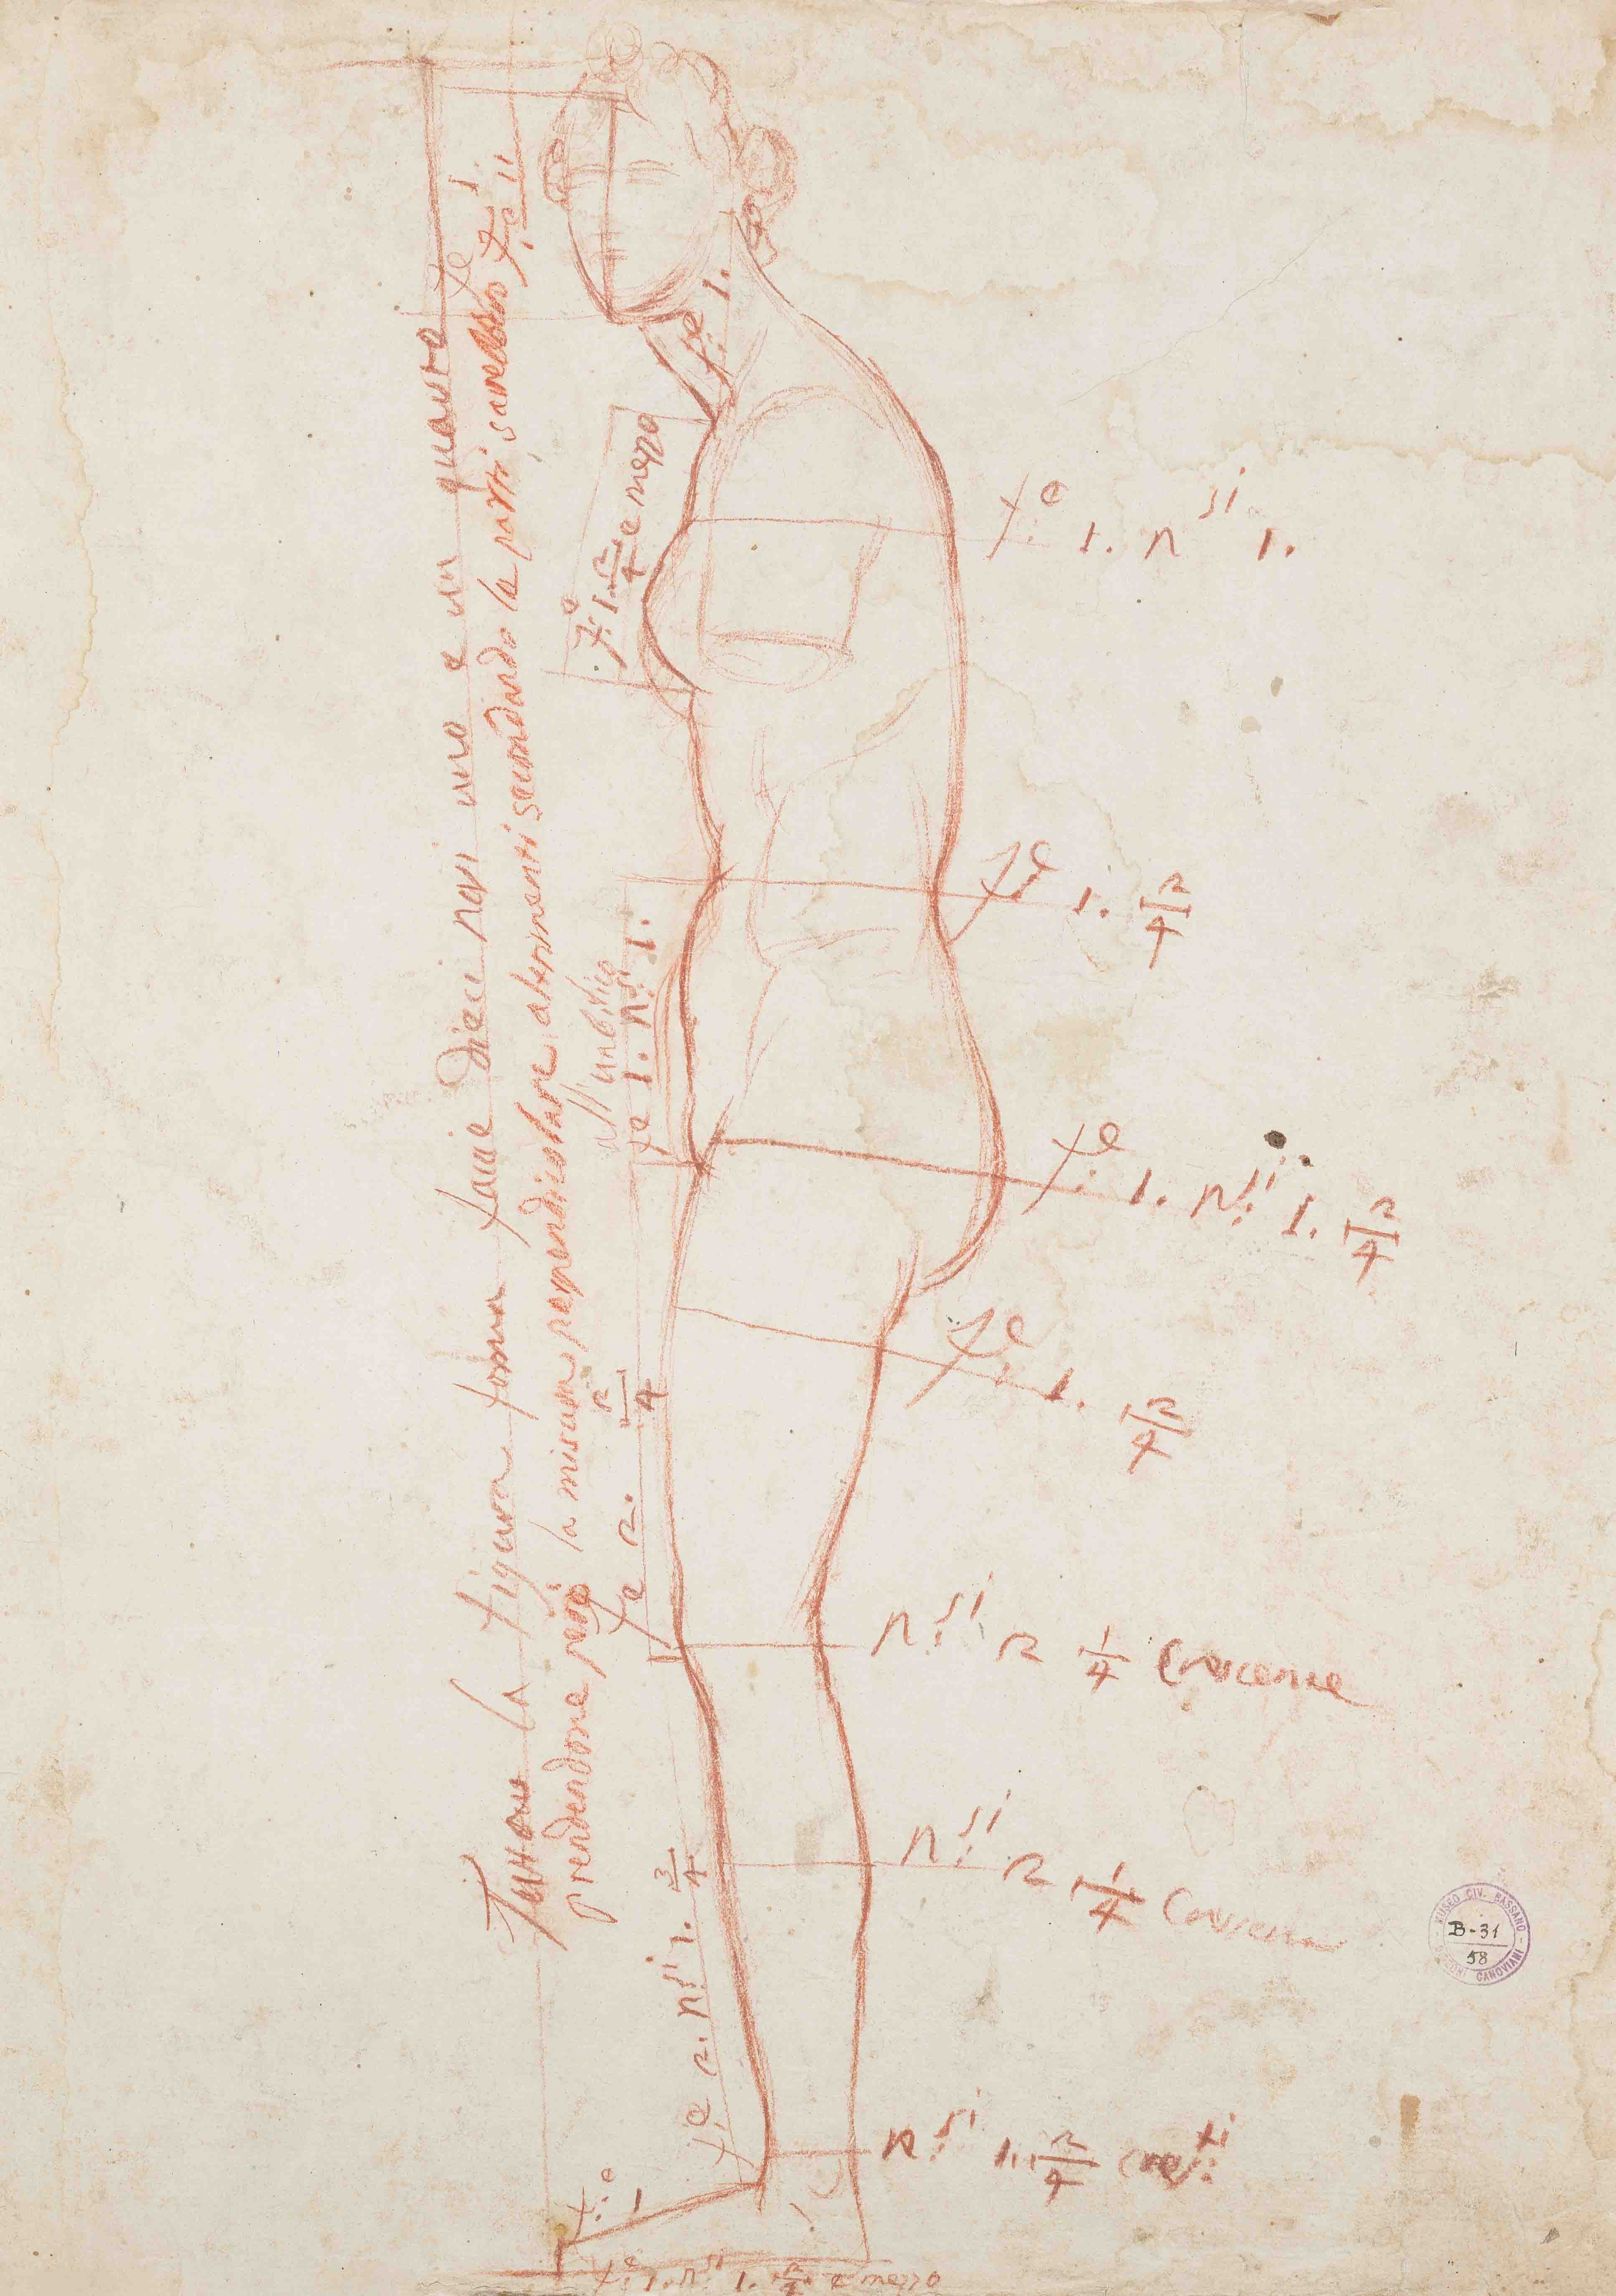 Tutta la figura forma facie dieci nasi uno e un quarto fe
prendendone però la misura perpendicolare altrimenti secondando le parti sarebbero f:e 11
f:e 1.
f:e 1. 2/4 e mezzo
f:e 1. n si 1.
f:e 1. 2/4
all'umbelico
fe 1. n:si 1.
f:e 1. n:si 1. 2/4
f:e 1. 2/4
fe 2. 2/4
n:si 2 1/4 Crescente
n:si 2 1/4
f:e 2. n:si 1. 3/4
n:si 1. 2/4 cre:ti
f:e 1
f:e 1. n:si 1. 2/4 e mezzo
MUSEO CIV. BASSANO
B-31
58
DISEGNI CANOVIANI